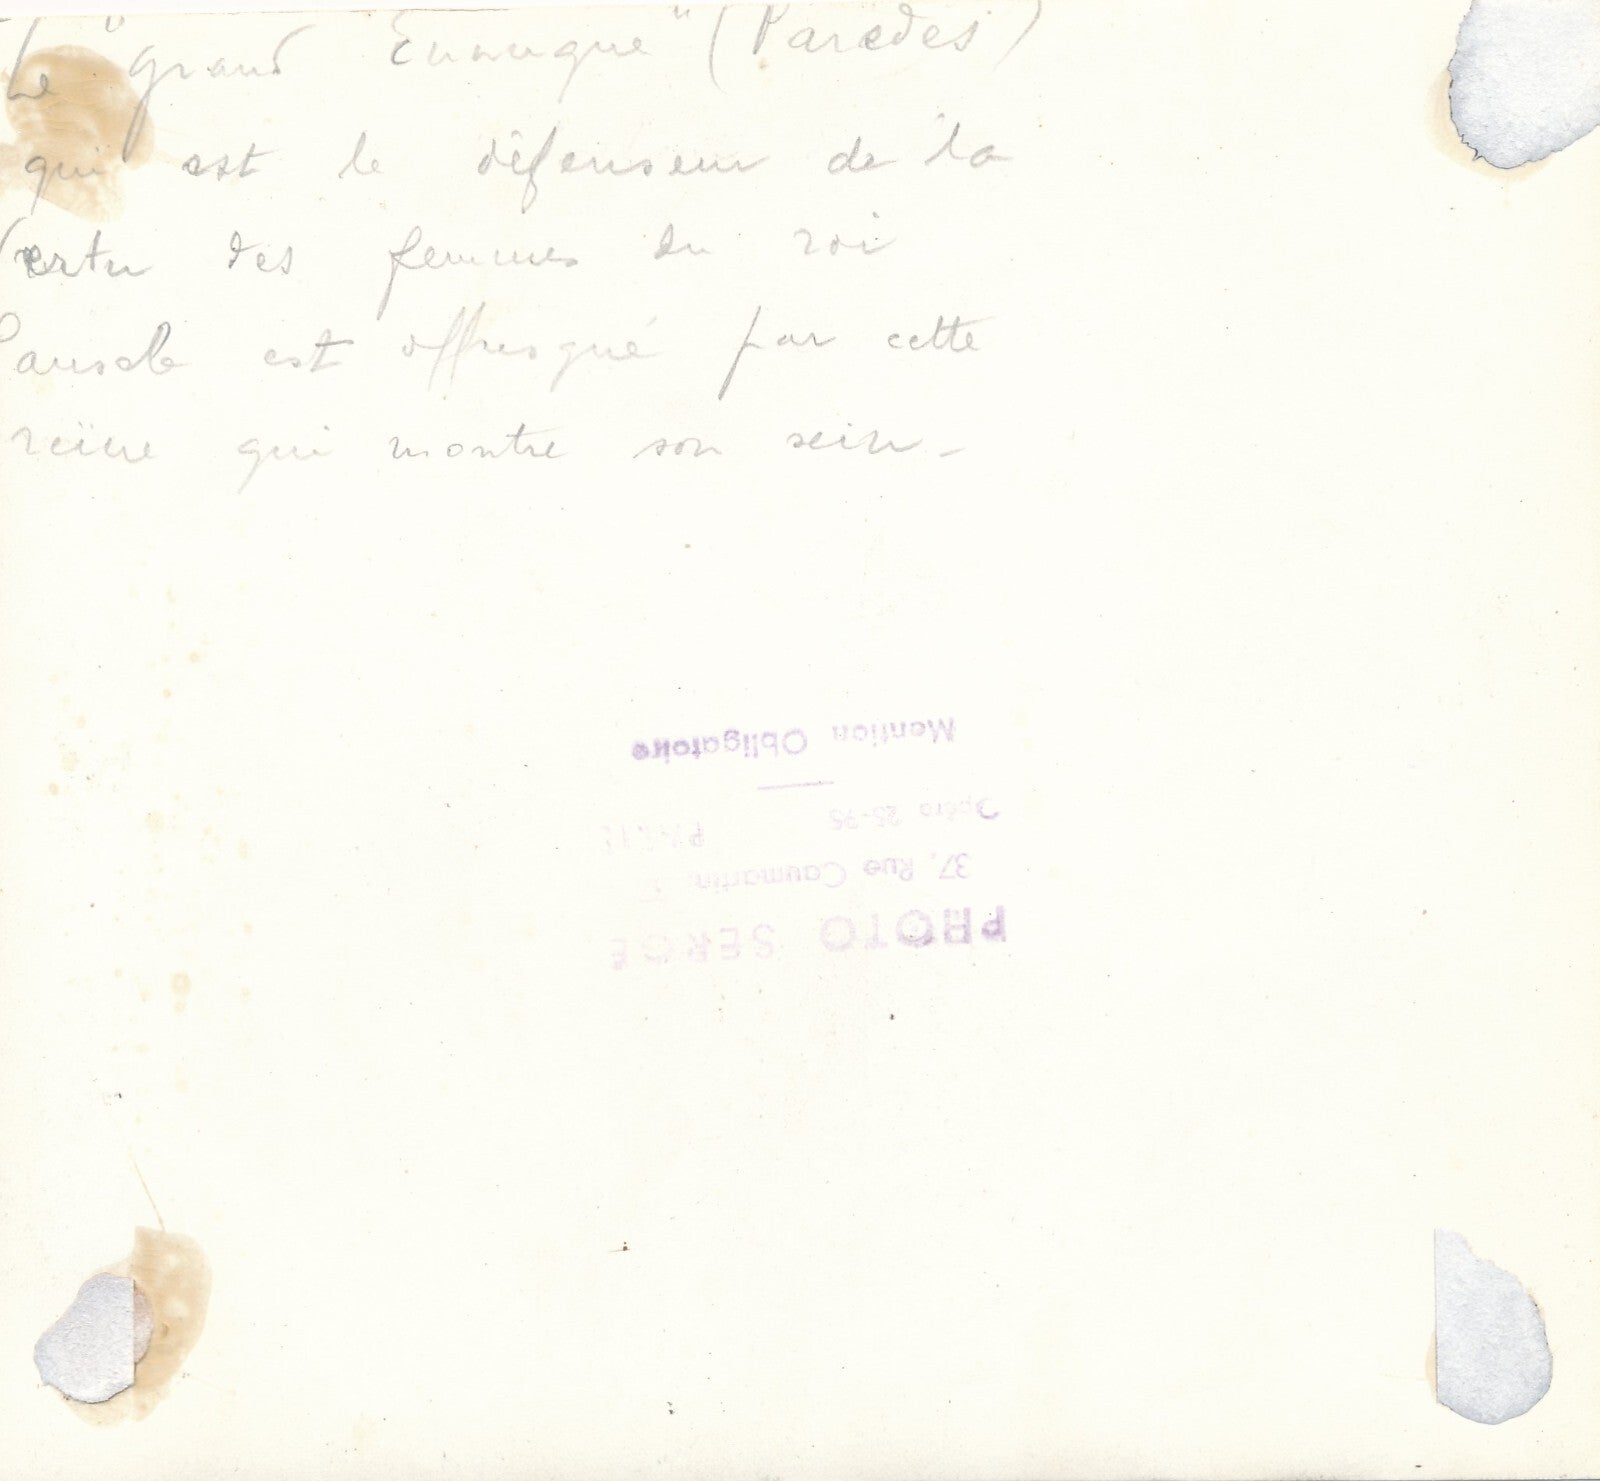 Le "Grand Eunuque" (Paredes)
qui est le défenseur de la
Vertu des femmes du roi
Pausole est offusqué par cette
reine qui montre son sein -
PHOTO SERGE
37, Rue Caumartin,
Opéra 25-95 PARIS
Mention Obligatoire